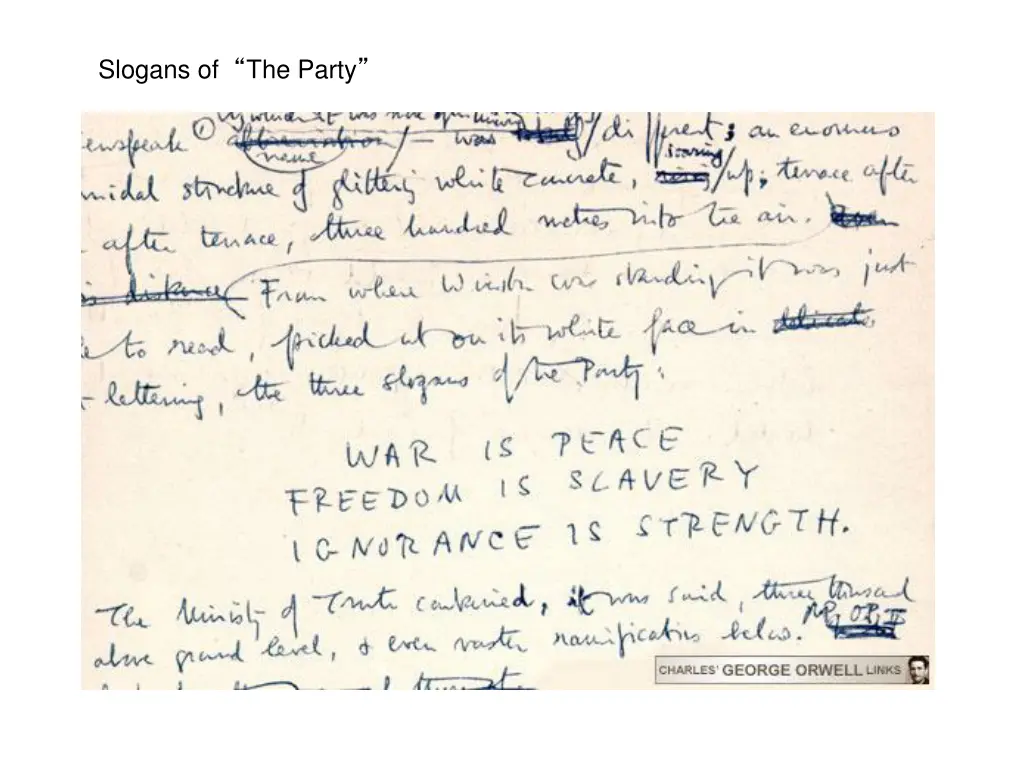 Slogans of “The Party”
by which it was
ewspeak ① name — was different; an enormous
midal structure of glittering white concrete, soaring up; terrace after
after terrace, three hundred metres into the air.
distance From where Winston was standing it was just
e to read, picked out on its white face in delicate
t lettering, the three slogans of the Party:
WAR IS PEACE
FREEDOM IS SLAVERY
IGNORANCE IS STRENGTH.
The Ministry of Truth contained, it was said, three thousand
above ground level, & even vaster ramifications below.
CHARLES' GEORGE ORWELL LINKS